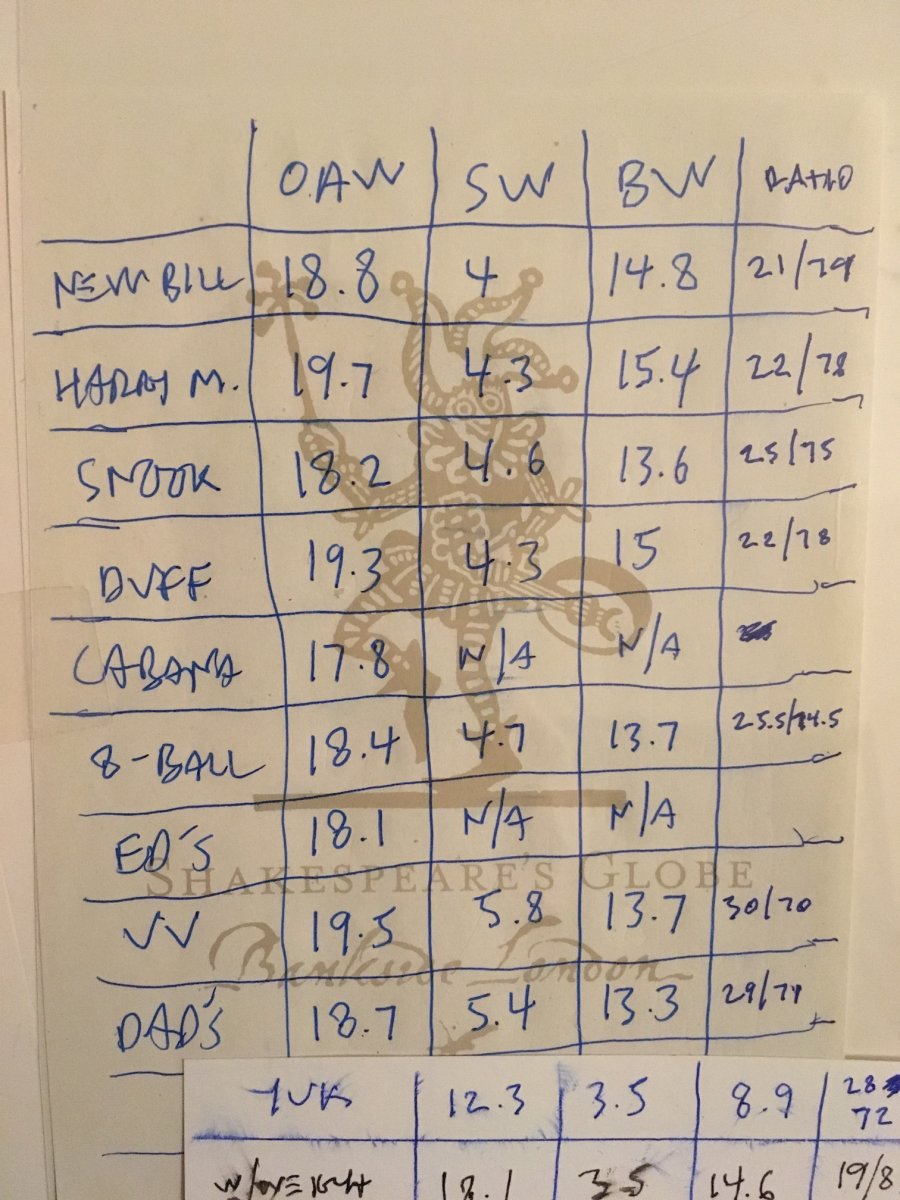 OAW SW BW RATIO
NEW BILL 18.8 4 14.8 21/79
HARRY M. 19.7 4.3 15.4 22/78
SNOOK 18.2 4.6 13.6 25/75
DUFF 19.3 4.3 15 22/78
CABANA 17.8 N/A N/A
8-BALL 18.4 4.7 13.7 25.5/74.5
ED'S 18.1 N/A N/A
SHAKESPEARE'S GLOBE
VV 19.5 5.8 13.7 30/70
Bankside London
DAD'S 18.7 5.4 13.3 29/71
YUK 12.3 3.5 8.9 28
72
18.1 3.5 14.6 19/8